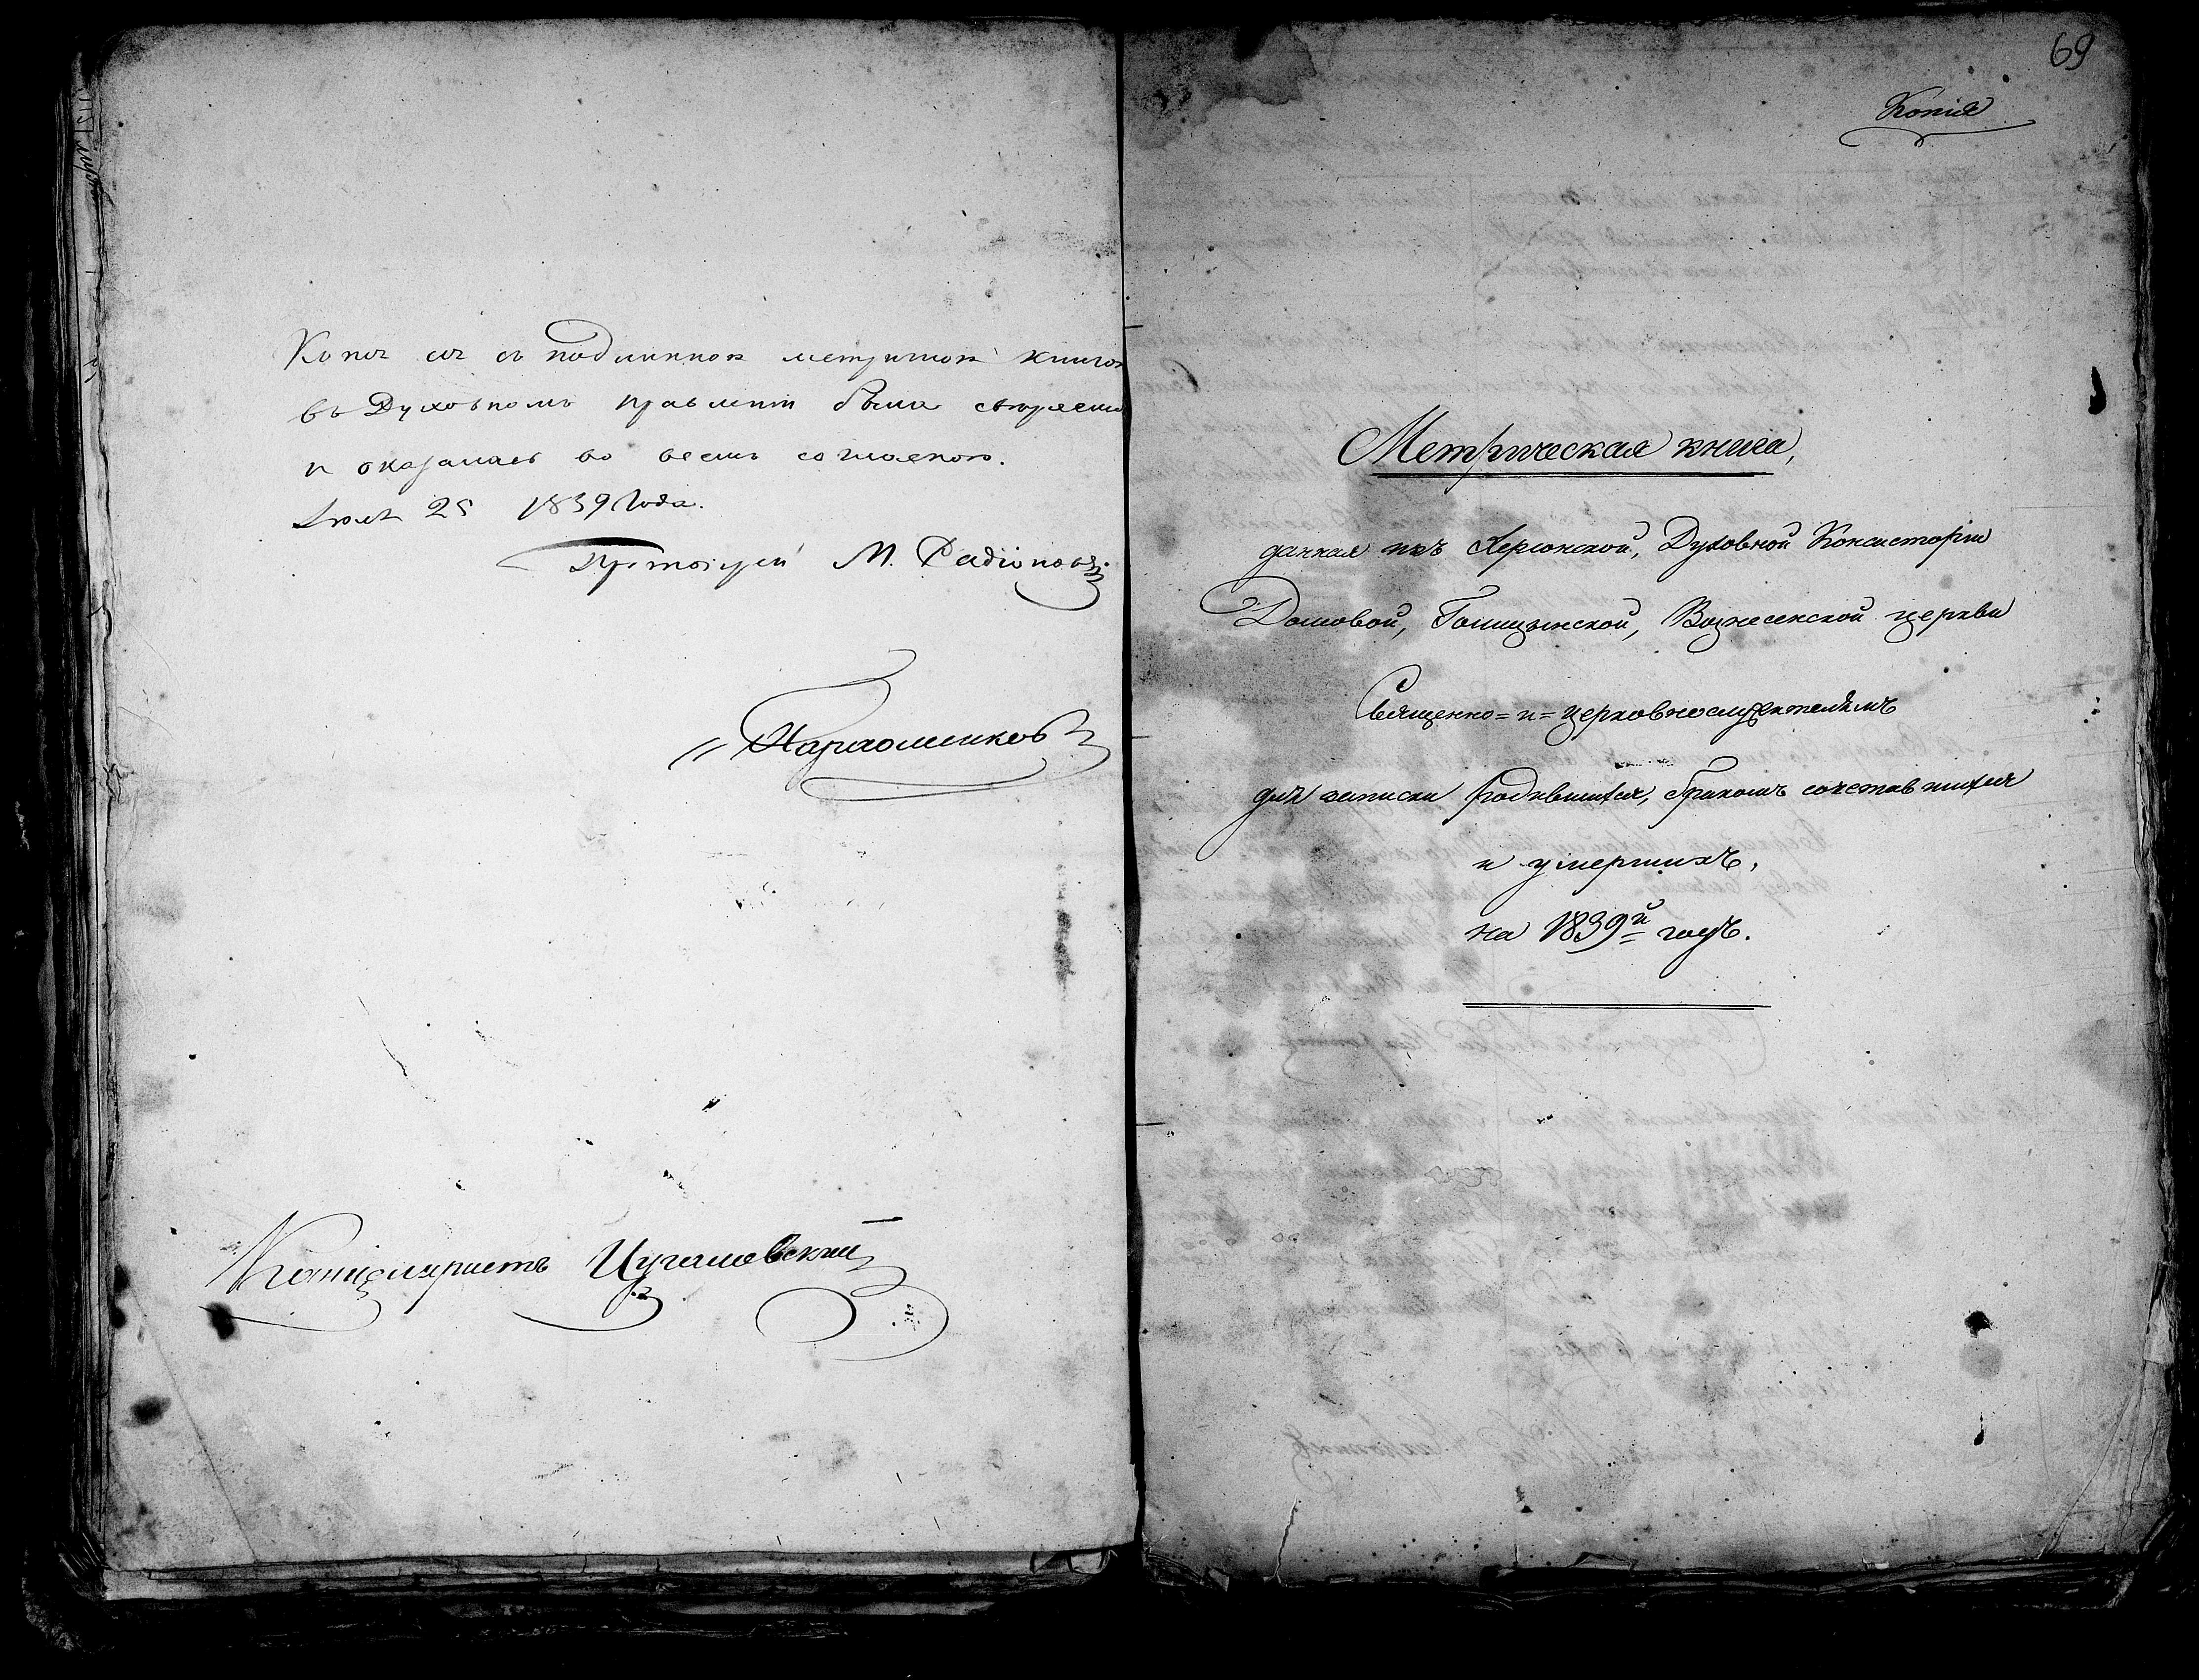 Копія сія съ подлинною метричною книгою
въ Духовномъ правленіи была сверяема
и оказалась во всемъ согласною.
Іюля 25 1839 Года.
Протоіерей М. Радіоновъ
Канцеляристъ
69
Копія
Метрическая книга,
данная изъ Херсонской, Духовной Консисторіи
Домовой, Голицынской, Вознесенской церкви
Священно=и=церковнослужителямъ
для записки родившихся, бракомъ сочетавшихся
и умершихъ,
на 1839й годъ.